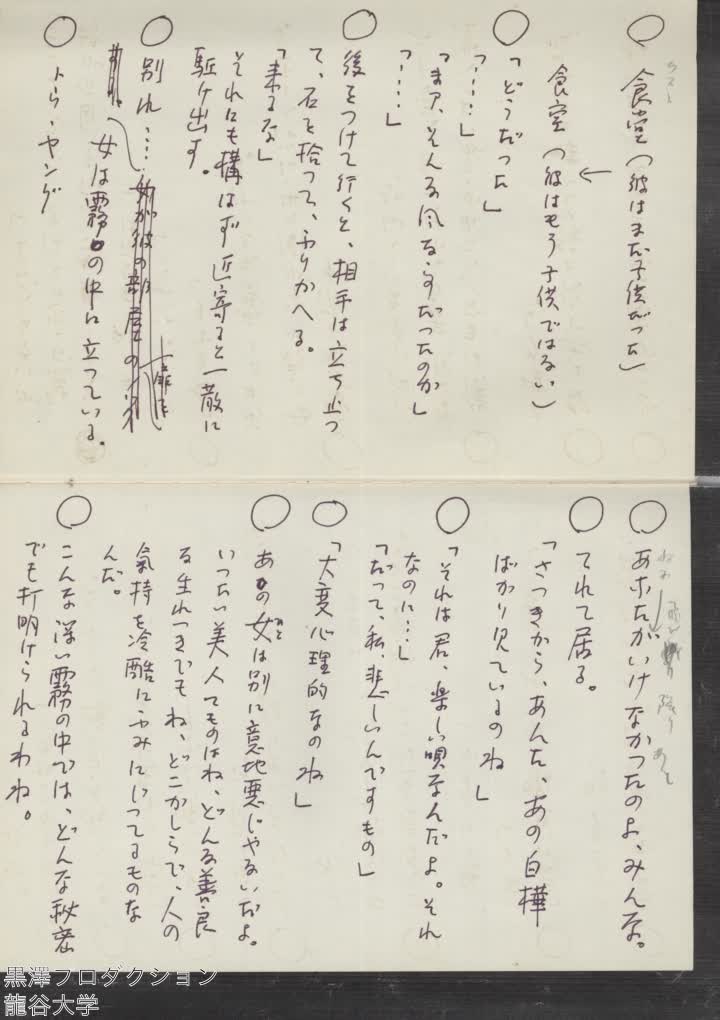 ○ 食堂（彼はまだ子供だった）
←
食堂（彼はもう子供ではない）
○ 「どうだった」
「‥‥」
「まア、そんな風ならすだったのか」
「‥‥」
○ 後をつけて行くと、相手は立ち止つ
て、石を拾って、ふりかへる。
「来るな」
それにも構はず近寄ると一散に
駈け出す。
○ 別れ‥‥
女は霧の中に立っている。
○ トラ・ヤング
○ あなたがいけなかったのよ、みんな。
○ てれて居る。
「さつきから、あんた、あの白樺
ばかり見ているのね」
○ 「それは君、楽しい唄なんだよ。それ
なのに‥‥」
「だって、私、悲しいんですもの」
○ 「大変心理的なのね」
○ あの女は別に意地悪じゃないだよ。
いったい美人てものはね、どんな善良
な生れつきでもね、どこかしらで、人の
気持を冷酷にふみにじってるものな
んだ。
○ こんな深い霧の中では、どんな秘密
でも打明けられるわね。
黒澤プロダクション
龍谷大学